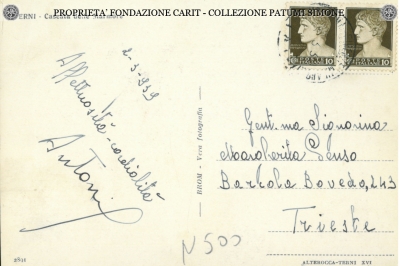 PROPRIETA' FONDAZIONE CARIT - COLLEZIONE PATUMI SIMONE
TERNI - Cascata delle Marmore
2-3-939
Affettuosità - cordialità
Antoni
BROM - Vera fotografia
10
10
Gent.ma Signorina
Margherita Senso
Barcola Bovedo, 243
Trieste
N 500
2821
ALTEROCCA-TERNI XVI